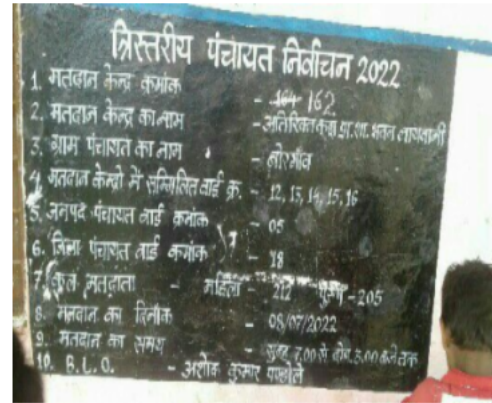 त्रिस्तरीय पंचायत निर्वाचन 2022
1. मतदान केन्द्र क्रमांक - 164 162
2. मतदान केन्द्र का नाम - अतिरिक्त कक्ष प्रा.शा. भवन
3. ग्राम पंचायत का नाम - बोरगाँव
4. मतदान केन्द्रो में सम्मिलित वार्ड क्र. - 12, 13, 14, 15, 16
5. जनपद पंचायत वार्ड क्रमांक - 05
6. जिला पंचायत वार्ड क्रमांक - 18
7. कुल मतदाता - महिला - 212 पुरुष - 205
8. मतदान का दिनांक - 08/07/2022
9. मतदान का समय - सुबह 7.00 से दोप. 3.00 बजे तक
10. B.L.O. - अशोक कुमार